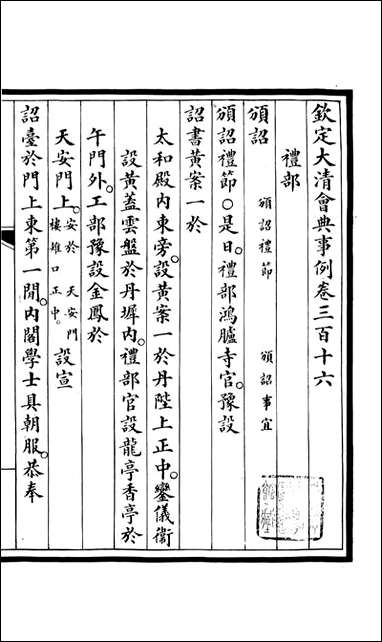 欽定大清會典事例卷三百十六
禮部
頒詔 頒詔禮節 頒詔事宜
頒詔禮節○是日。禮部鴻臚寺官。豫設
詔書黃案一於
太和殿內東旁。設黃案一於丹陛上正中。鑾儀衛
設黃蓋雲盤於丹墀內。禮部官設龍亭香亭於
午門外。工部豫設金鳳於
天安門上。安於天安門樓雉口正中。設宣
詔臺於門上東第一間。內閣學士具朝服。恭奉